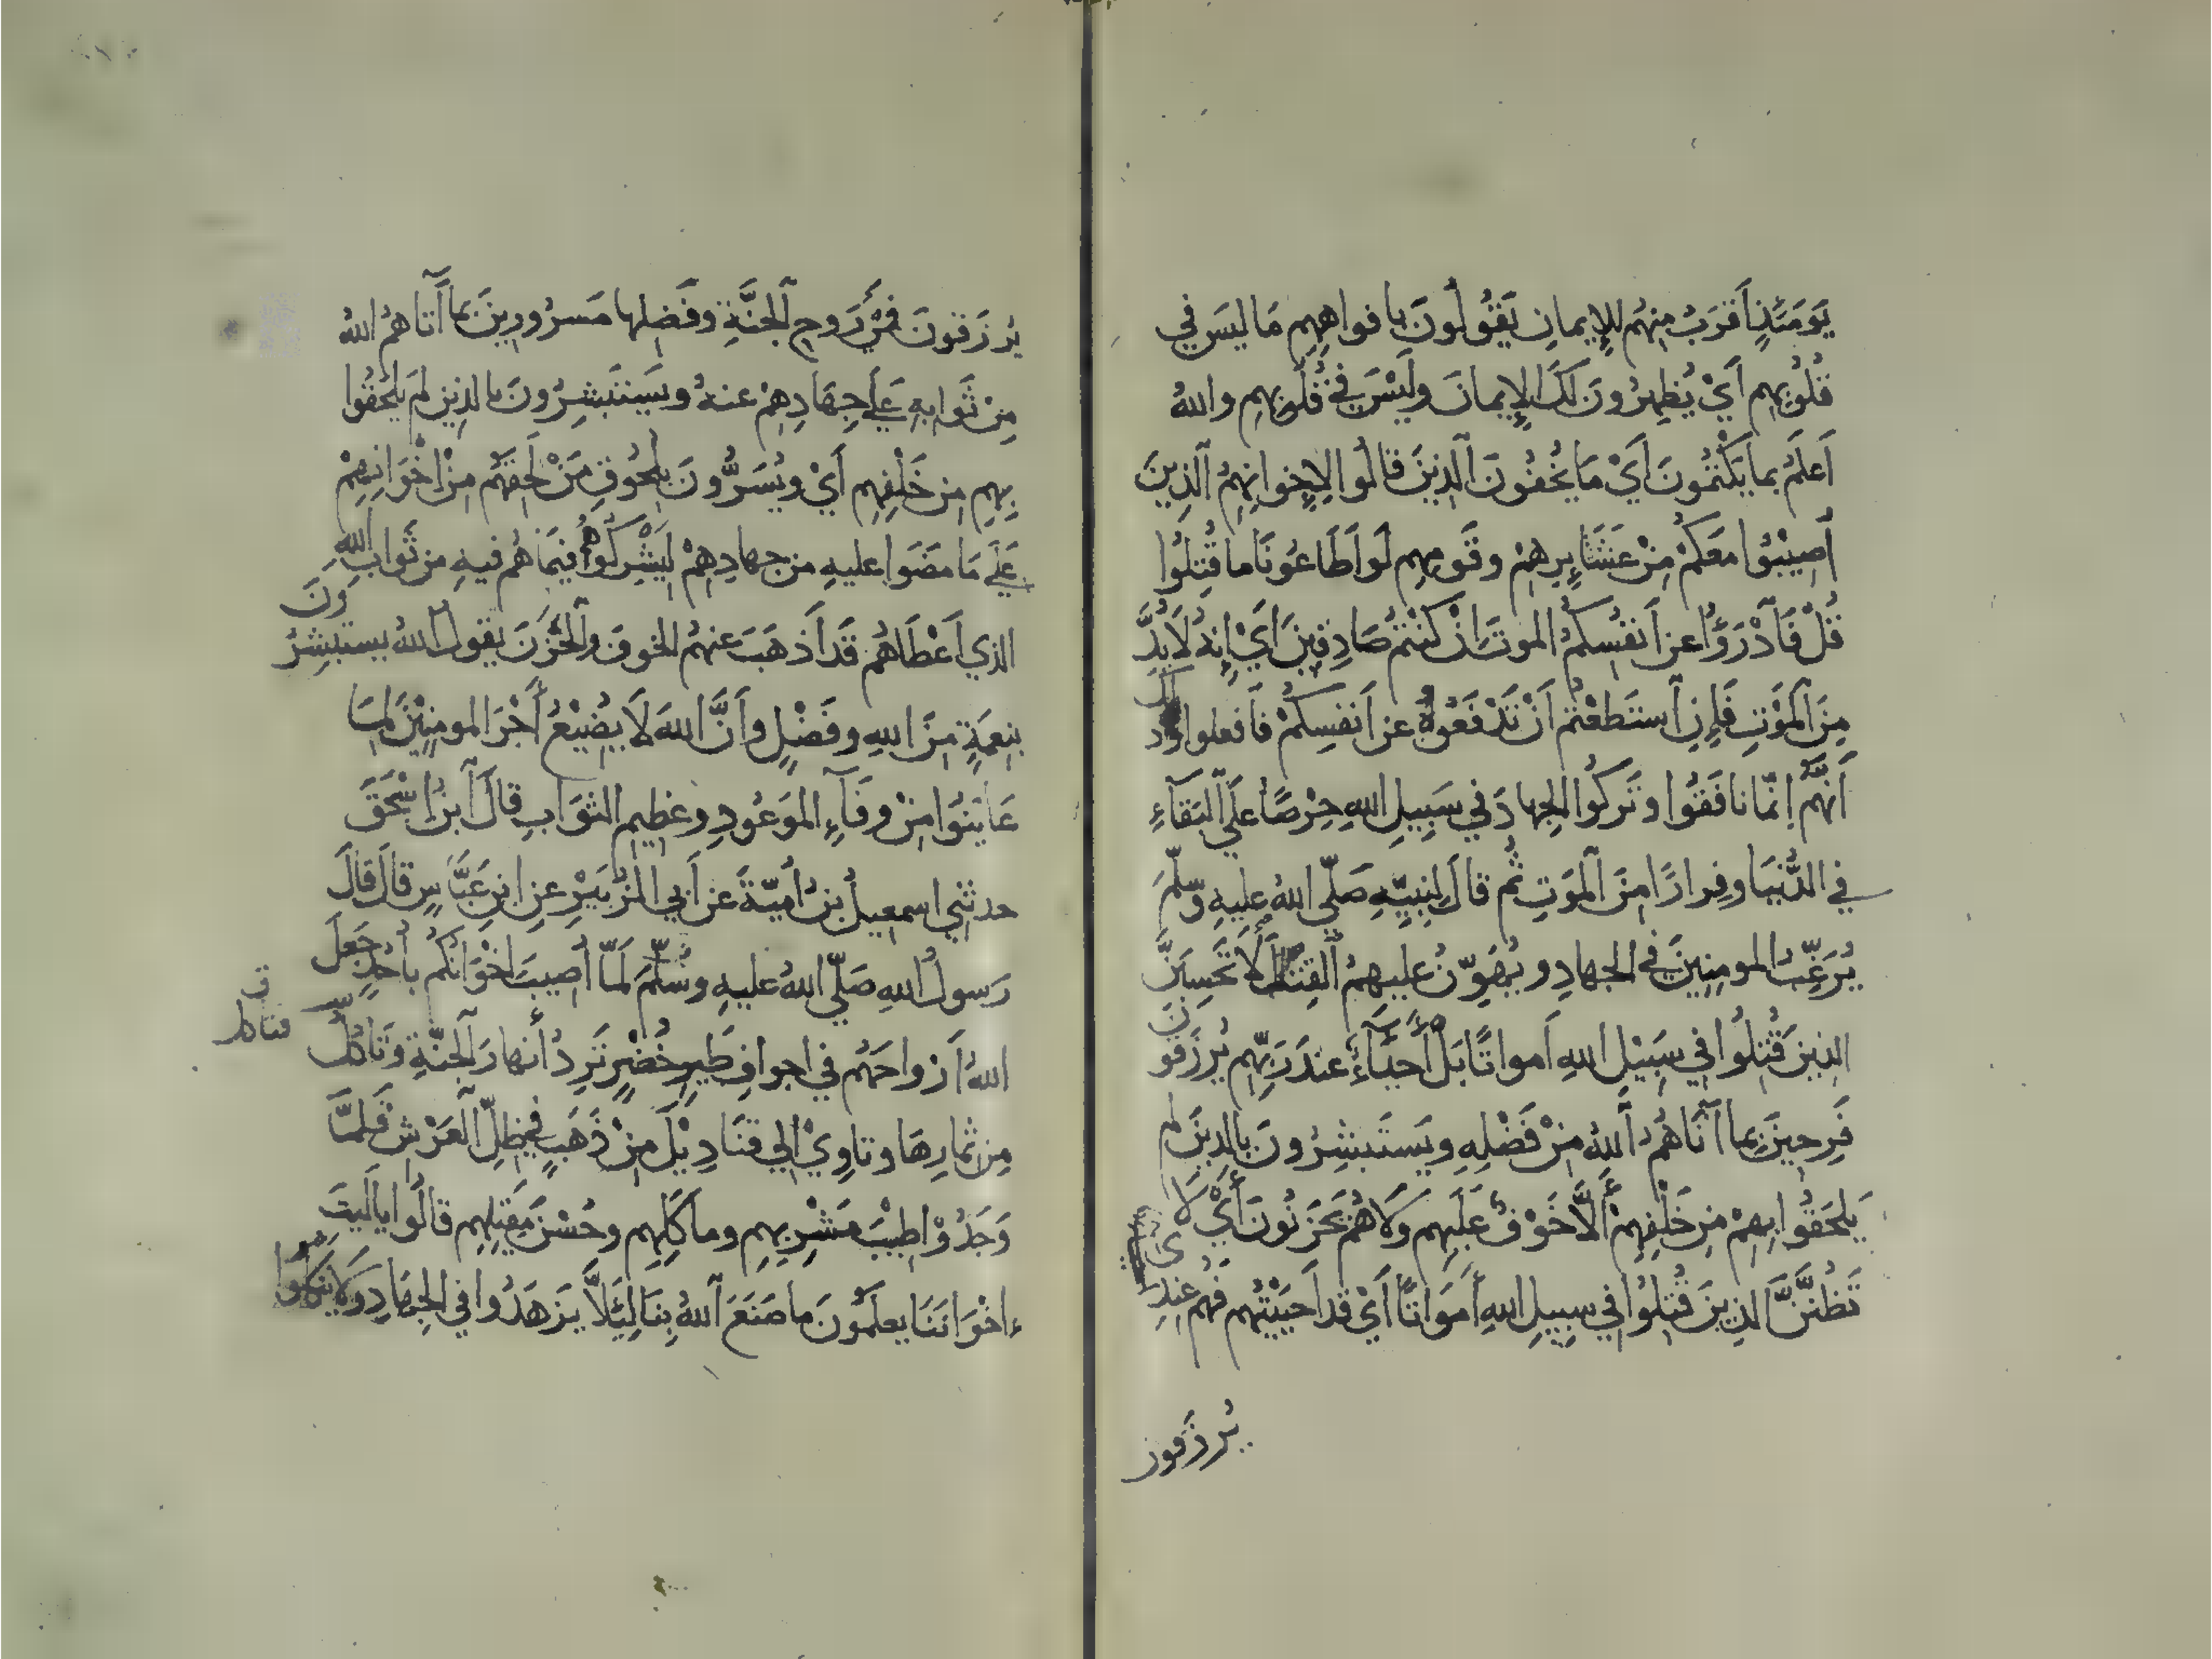 يَوْمَئِذٍ أَقْرَبُ مِنْهُم لِلإِيمانِ يَقُولُونَ بِافواهِهِم مَا لَيسَ في
قُلُوبِهِم أَيْ يُظهِرُونَ لَكَ الإِيمانَ وَلَيْسَ فِي قُلُوبِهِم واللهُ
أَعلَمُ بما يَكْتُمُونَ أَيْ مَا يُخْفُونَ الَّذِينَ قالُوا لإِخوانِهِمُ الَّذِينَ
أُصِيْبُوا مَعَكُمْ مِنْ عَشَائِرِهِمْ وقَومِهِم لَو أَطَاعُونَا ما قُتِلُوا
قُلْ فَادْرَؤُا عن أَنفُسِكُمُ الموتَ انْ كُنْتُمْ صَادِقِينَ أَيْ إِنهُ لَا بُدَّ
مِنَ المَوْتِ فَإِنِ اسْتَطَعْتُمْ أَنْ تَدْفَعُوهُ عن أَنفُسِكُمْ فَافعلوا وذلك
أَنَّهُمْ إِنّما نافَقُوا وتَرَكُوا الجِهادَ في سَبِيلِ اللهِ حِرْصًا عَلَى البَقَآءِ
في الدُّنيَا وفِرارًا مِنَ المَوتِ ثُم قالَ لِنبِيِّهِ صَلَّى اللهُ عليهِ وسَلَّمَ
يُرَغِّبُ المومِنِينَ في الجهادِ ويُهَوِّنُ عليهمُ القتلَ وَلَا تَحْسِبَنَّ
الذِينَ قُتِلُوا في سَبِيْلِ اللهِ أَمواتًا بَلْ أَحْيَآءٌ عندَ رَبِّهِم يُرزَقُونَ
فَرِحِينَ بما آتَاهُمُ اللهُ مِنْ فَضْلِهِ ويَستَبْشِرُونَ بِالذِينَ لم
يَلحَقُوا بِهِمْ مِن خَلْفِهِمْ أَلَّا خَوْفٌ عَلَيهِم وَلَا هُمْ يَحْزَنُونَ أَيْ لَا
تَظُنَّنَّ الذِينَ قُتِلُوا في سبِيلِ اللهِ أَمْوَاتًا أَيْ قد أَحيَيْتُهم فَهُم عِندِى
يُرزَقون
يُرزَقونَ فِي رَوحِ الجَنَّةِ وفَضلِها مَسرُورِينَ بما أَتاهُمُ اللهُ
مِنْ ثَوابِهِ عَلَى جِهَادِهِمْ عنهُ ويَستَبشِرُونَ بالذِينَ لم يَلحَقُوا
بِهِم مِن خَلْفِهِم أَيْ ويُسَرُّونَ بِلُحُوقِ مَنْ لَحِقَهُمْ مِنْ اخْوَانِهِمْ
عَلَى مَا مَضَوا عليهِ من جِهادِهِمْ لِيَشْرَكُوهُمْ فيمَا هُم فيهِ من ثَوابِ اللهِ
الذي أَعْطَاهُم قَد أَذهَبَ عنهُمُ الخوفَ والحُزنَ يقولُ اللهُ يستَبشِرُونَ
بنِعمَةٍ مِنَ اللهِ وفَضْلٍ وأَنَّ اللهَ لَا يُضِيْعُ أَجْرَ المومِنِيْنَ لِمَا
عَايَنُوا مِنْ وفَآءِ المَوعُودِ وعَظِيمِ الثوَابِ قالَ ابنُ اسْحَقَ
حدثني اسمعيلُ بنُ أُمَيّةَ عن أَبي الزُّبَيْرِ عنِ ابنِ عَبَّاسٍ قالَ قالَ
رَسولُ اللهِ صَلّى اللهُ عليهِ وسَلَّمَ لَمّا أُصِيبَ اخْوَانُكُم بأُحُدٍ جَعَلَ
اللهُ أَرواحَهُم في اجوافِ طَيرٍ خُضْرٍ تَرِدُ أَنهارَ الجَنّةِ وتَأكُلُ
مِن ثمارِهَا وتاوِيْ إِلى قنَادِيْلَ مِنْ ذَهَبٍ في ظِلِّ العَرْشِ فَلمَّا
وَجَدُوْا طِيْبَ مَشْرَبِهِم ومأكَلِهِم وحُسْنَ مَقِيلِهِم قالُوا يالَيتَ
اخْوَانَنَا يعلَمُونَ ما صَنَعَ اللهُ بِنَا لِئَلَّا يَزهَدُوا في الجِهَادِ وَلَا يَنكُلُوا